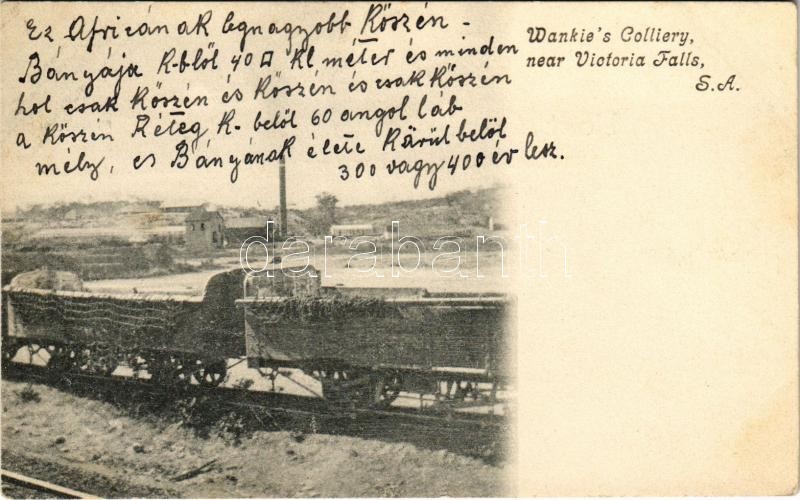 Ez Africának legnagyobb Kőszén-
Bányája K-blől 40 □ Kl méter és minden
hol csak Kőszén és Kőszén és csak Kőszén
a Kőszén Réteg K-belől 60 angol láb
mély, es Bányának élete Kärül belől
300 vagy 400 év lesz.
Wankie's Colliery,
near Victoria Falls,
S.A.
darabanth